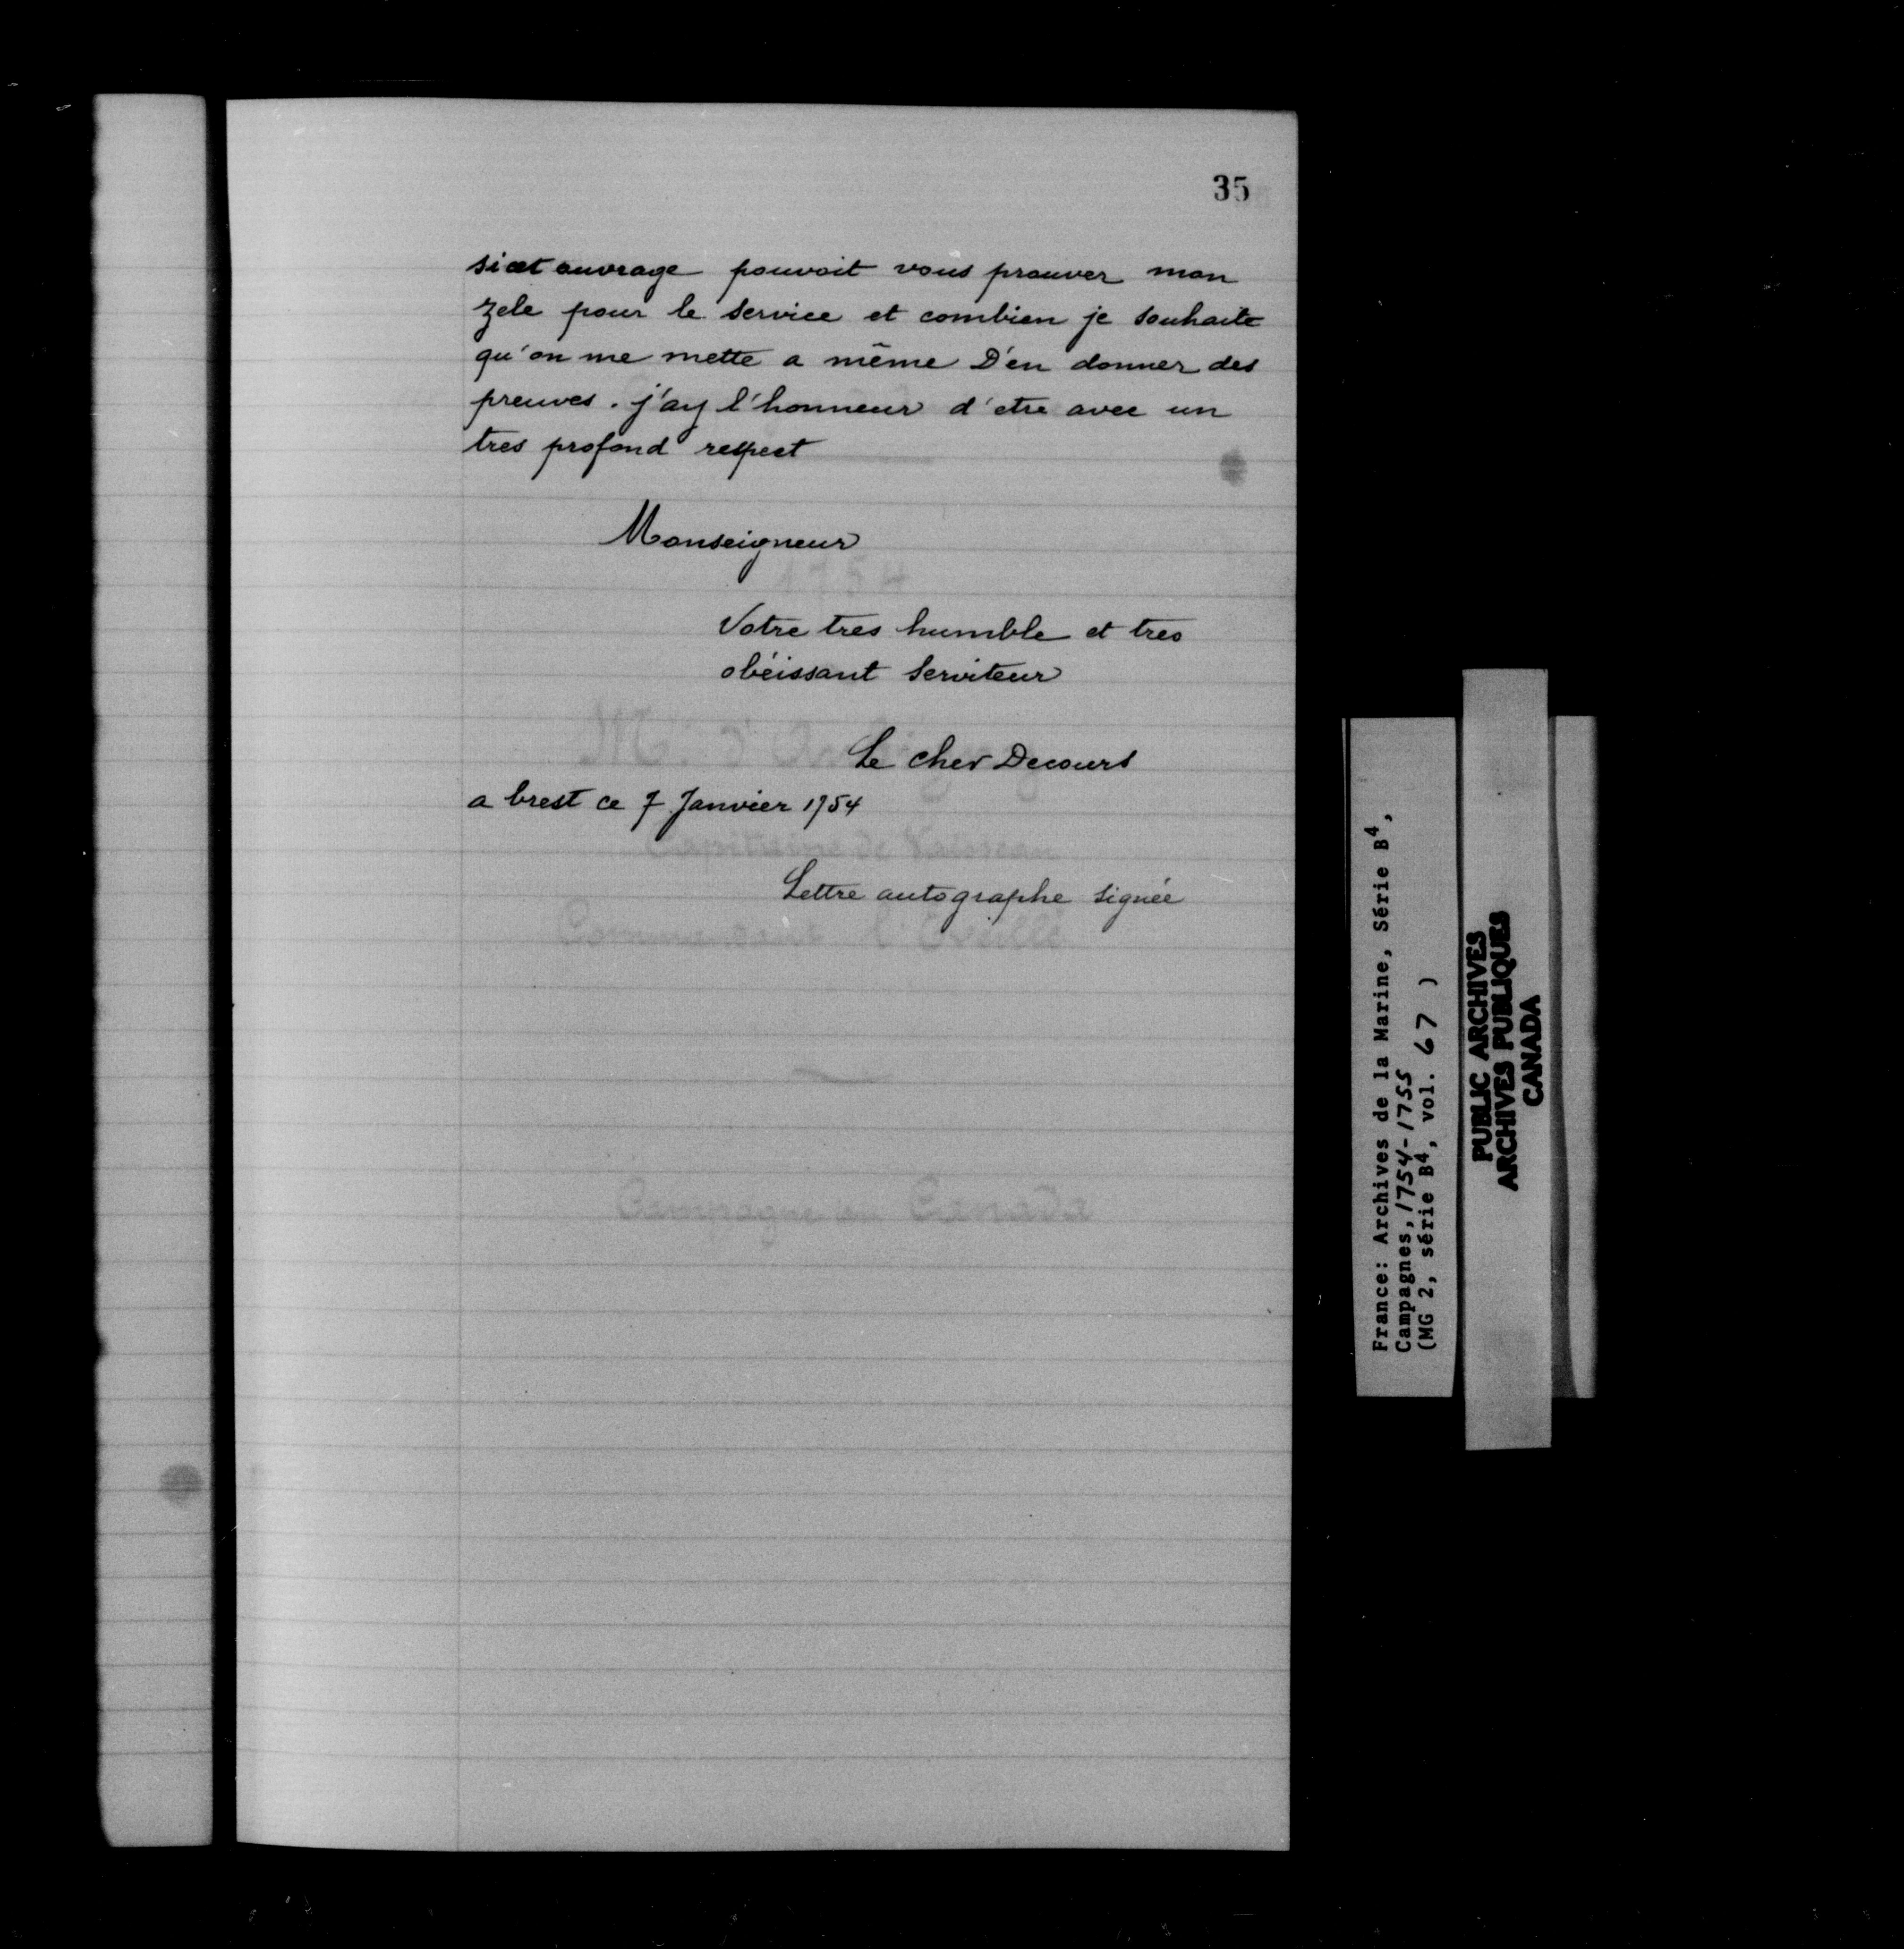 35
si cet ouvrage pouvoit vous prouver mon
zele pour le service et combien je souhaite
qu'on me mette a même D'en donner des
preuves. j'ay l'honneur d'etre avec un
tres profond respect
Monseigneur
Votre tres humble et tres
obéissant serviteur
Le cher Decours
a brest ce 7 Janvier 1754
Lettre autographe signée
1754
Capitaine de Vaisseau
Commandant l'Eveillé
Campagne au Canada
France: Archives de la Marine, Série B4,
Campagnes, 1754-1755
(MG 2, série B4, vol. 67 )
PUBLIC ARCHIVES
ARCHIVES PUBLIQUES
CANADA